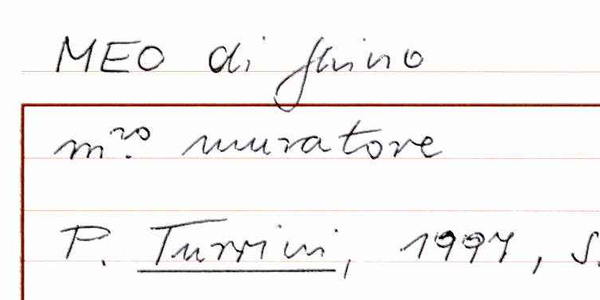 MEO di Ghino
m.ro muratore
P. Turrini, 1997, S.